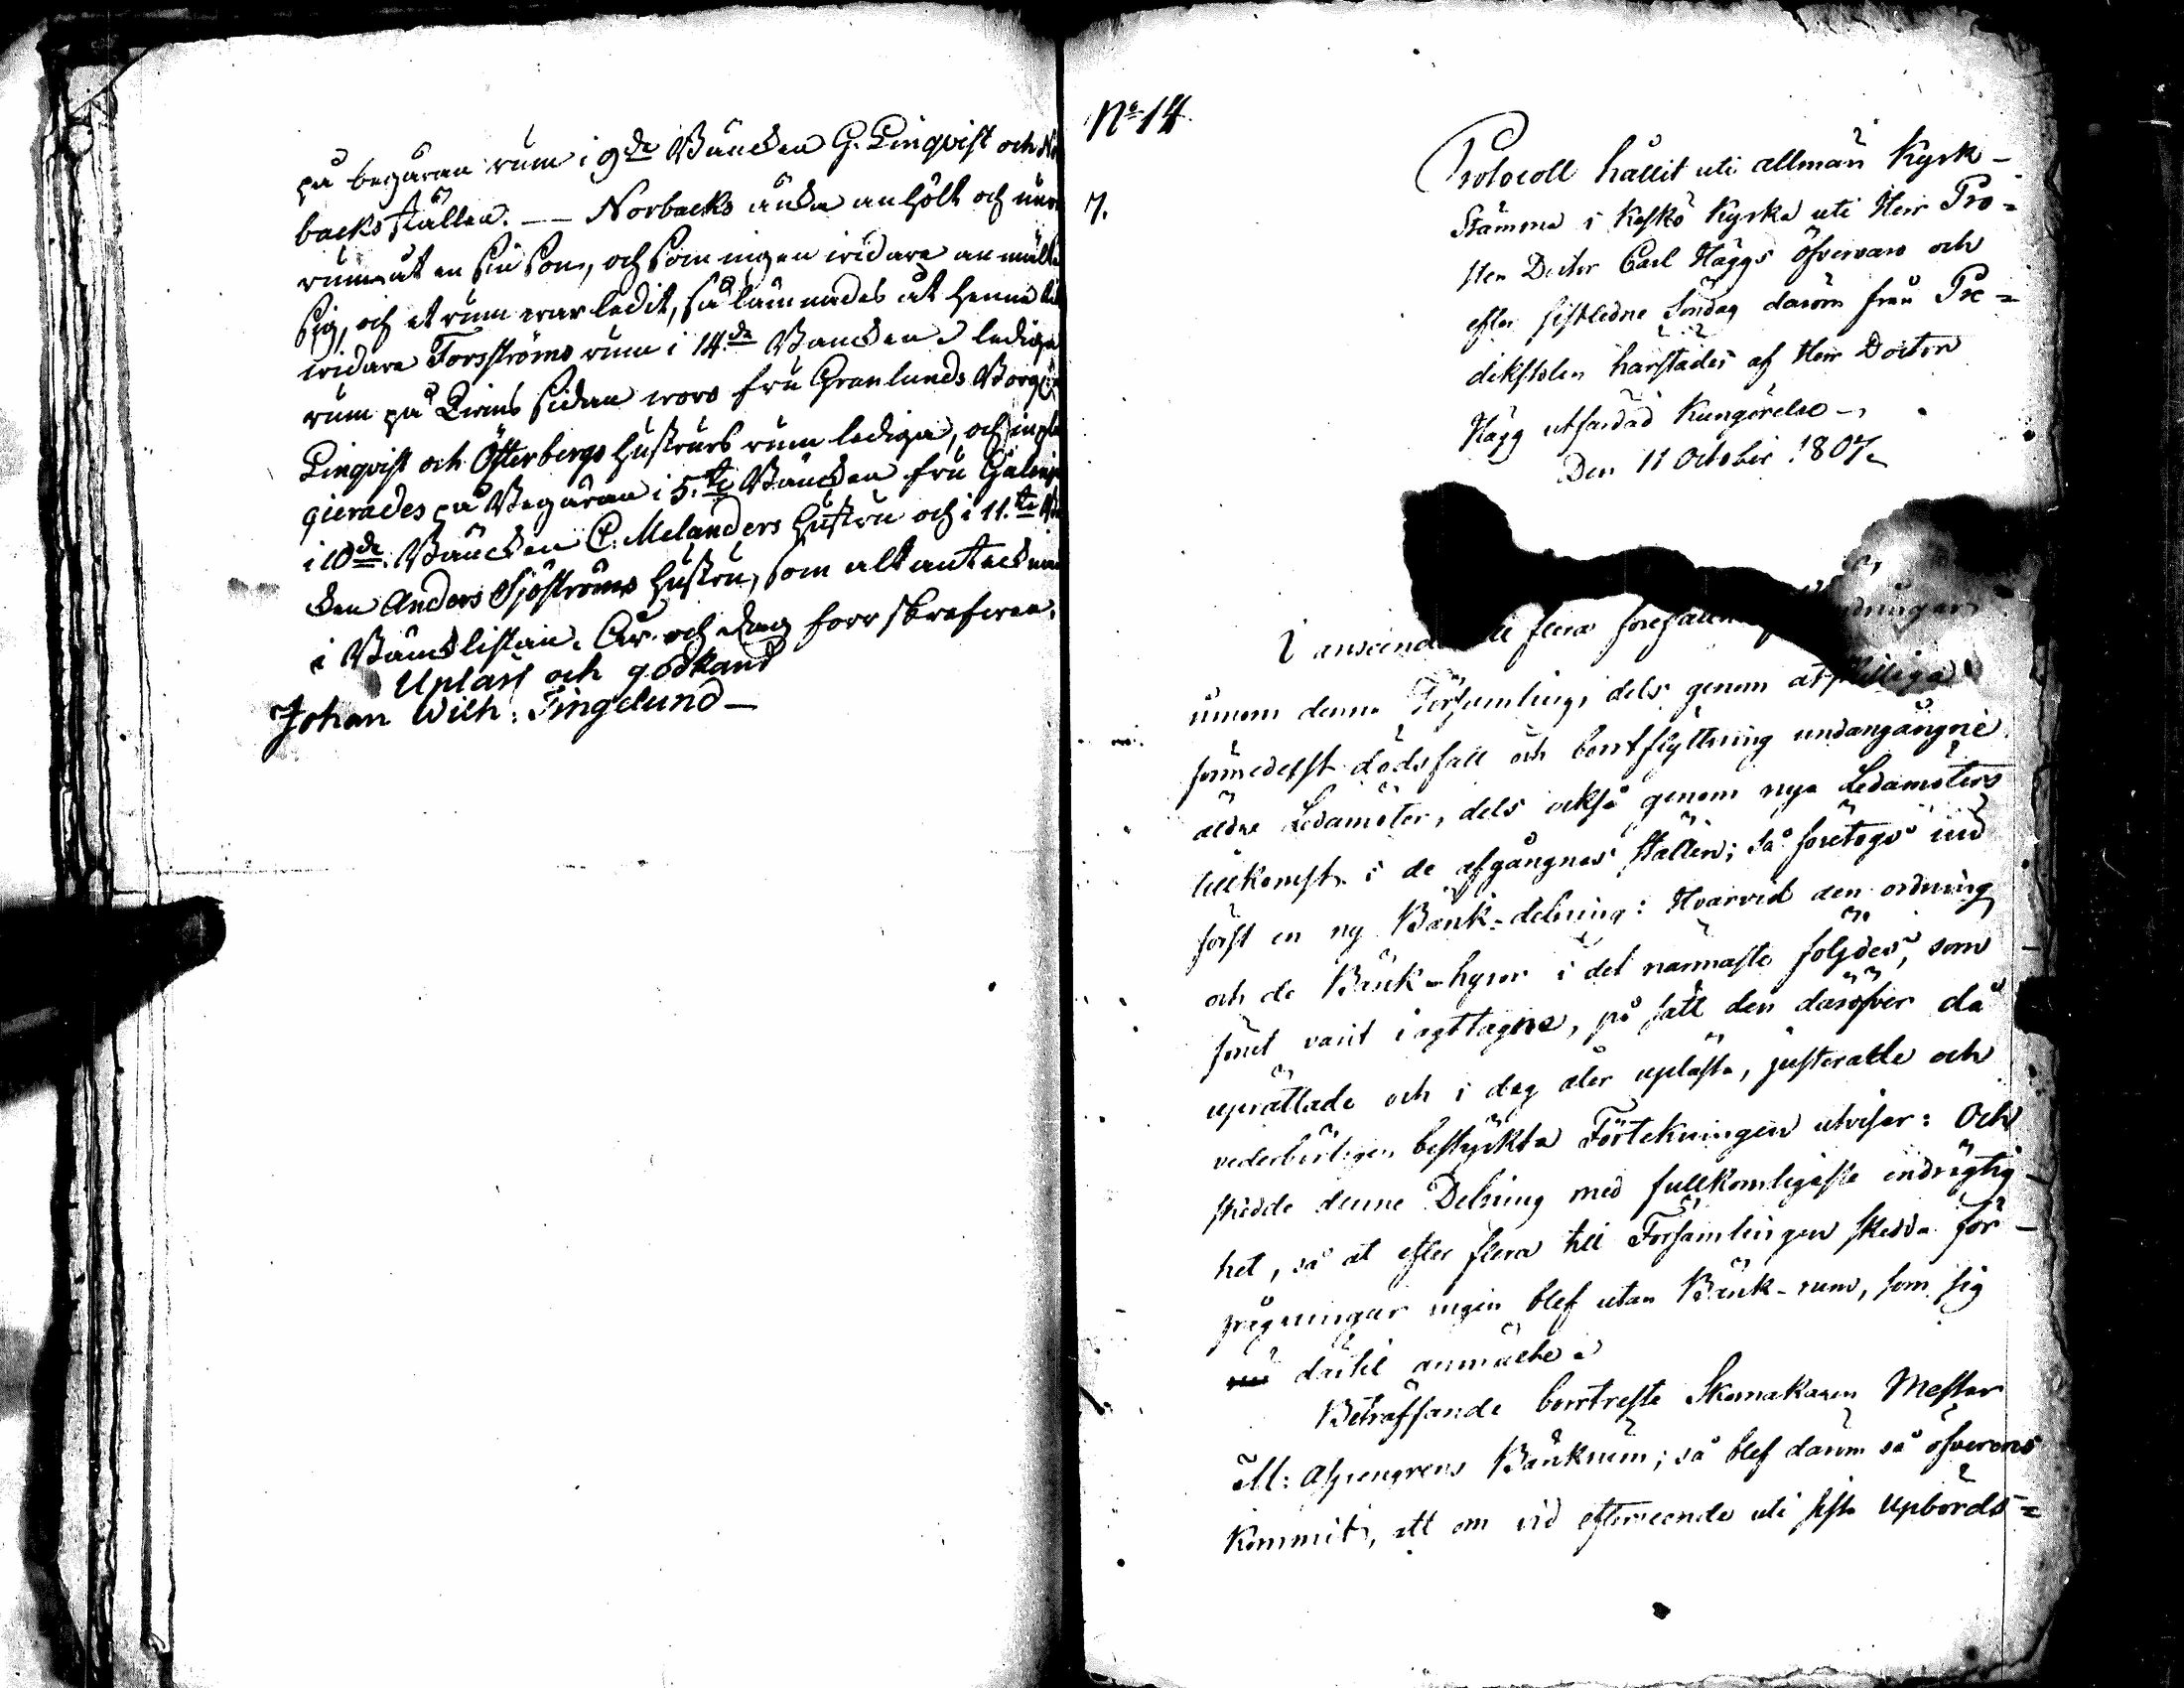 på begäran rum i 9de Bäncken G. Linqvist och No
backs ställen. — Norbacks änka anhölt och um
rum åt en sin son, och som ingen widare anmälte
sig, och et rum war ledit, så lämnades åt henne
widare Forsströms rum i 14de Bancken. ledige
rum på Qwins sidan woro fru Granlunds Borg
Linqvist och Österbergs hustrurs rum lediga, och
gierades på Begäran i 5.te Bäncken fru
i 10de Bäncken C. Melanders hustru och i 11.te
ken Anders Sjöströms hustru, som alt antecknad
i Bäncklistan. År och dag förr skrefwen.
Upläst och godkänt
Johan Wilh: Tingelund—
No 14
7.
Protocoll hållit uti allmän Kyrk-
Stämma i Keskö Kyrka uti Herr Pro=
sten Doctor Carl Häggs öfvervaro och
efter sistledne Söndag därom från Pre=
dikstolen härstädes af Herr Doctorn
Hägg utfärdad Kungörelse—,
Den 11 October 1807.
I anseende till flera förefallen ändringar
innom denna Församling, dels genom åtskilliga
förmedelst dödsfall och bortflyttning undangångne
äldre Ledamöter, dels också genom nya Ledamöters
tillkomst i de afgångnas ställen; så företogs nu
först en ny Bänk-delning: Hvarvid den ordning
och de Bänk-hyror i det närmaste följdes, som
förut varit i agttagne, på sätt den däröfver då
uprättade och i dag äfven upläste, justerade och
vederbörligen bestyrkta Förtekningen utvisar: Och
skedde denne Delning med fullkomligaste endrägtig-
het, så at efter flera till Församlingen skedda för-
frågningar ingen blef utan Bänk-rum, som sig
därtil anmälte.
Beträffande bortreste Skomakaren Mester
M: Aspengrens Bänkrum; så blef därom så öfverens
kommit, att om vid efterseende uti sista Upbörds=